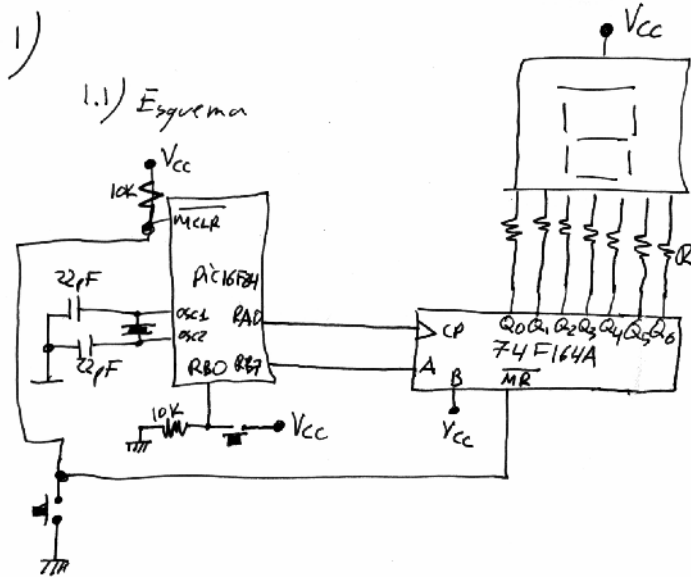 1)
1.1) Esquema
Vcc
Vcc
10K
MCLR
PIC16F84
22pF
OSC1
OSC2
22pF
RA0
RB7
RB0
10K
Vcc
R
CP
Q0 Q1 Q2 Q3 Q4 Q5 Q6
74F164A
A
B
MR
Vcc